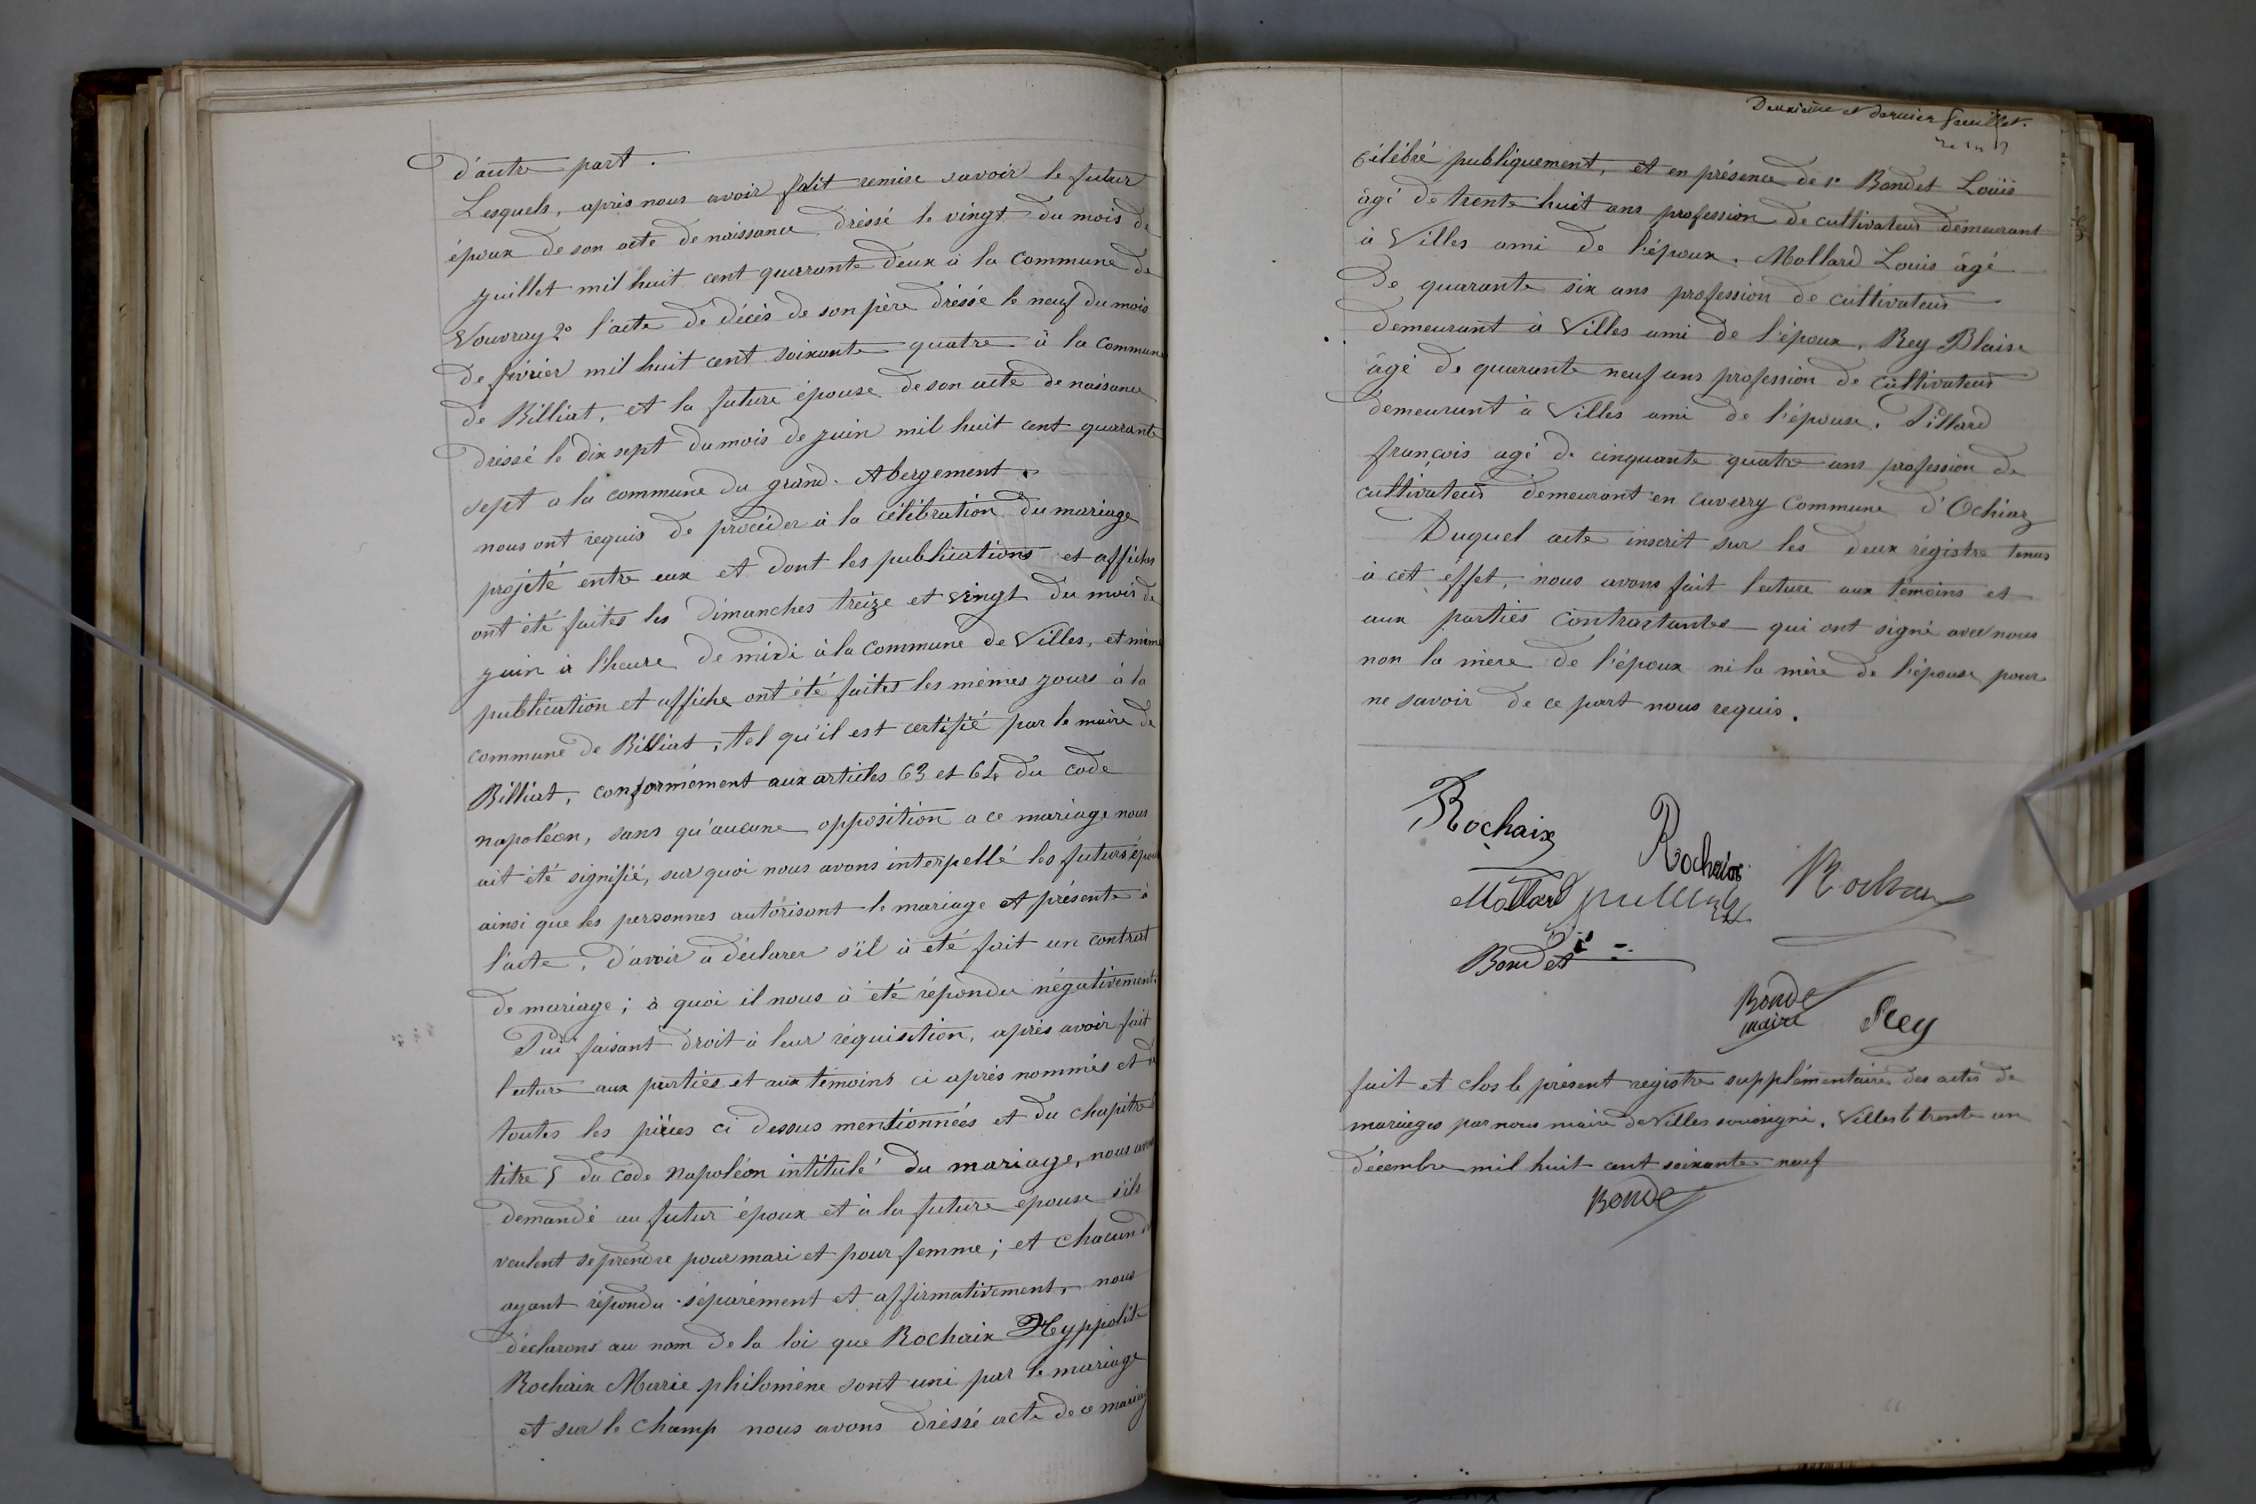 d'autre part.
Lesquels, après nous avoir fait remise savoir le futur
époux de son acte de naissance dréssé le vingt du mois de
juillet mil huit cent quarante deux à la commune de
Vouvray 2o l'acte de décès de son père dréssé le neuf du mois
de février mil huit cent soixante quatre à la commune
de Billiat, et la future épouse de son acte de naissance
dréssé le dix sept du mois de juin mil huit cent quarante
sept a la commune du grand-Abergement.
nous ont requis de procéder à la célébration du mariage
projété entre eux et dont les publications et affiches
ont été faites les dimanches treize et vingt du mois de
juin à l'heure de midi à la commune de Villes, et même
publication et affiche ont été faites les mêmes jours à la
commune de Billiat, tel qu'il est certifié par le maire de
Billiat, conformément aux articles 63 et 64 du code
napoléon, sans qu'aucune opposition a ce mariage nous
ait été signifié, sur quoi nous avons interpellé les futurs époux
ainsi que les personnes autorisant le mariage et présente à
l'acte, d'avoir à déclarer s'il à été fait un contrat
de mariage; à quoi il nous à été répondu négativement.
Puis faisant droit à leur réquisition, après avoir fait
lecture aux parties et aux témoins ci après nommés et de
toutes les pièces ci dessus mentionnées et du chapitre
titre 5 du code Napoléon intitulé du mariage, nous avons
demandé au futur époux et à la future épouse s'ils
veulent se prendre pour mari et pour femme; et chacun d
ayant répondu séparément et affirmativement, nous
déclarons au nom de la loi que Rochaix Hyppolite
Rochaix Marie philomène sont uni par le mariage
et sur le champ nous avons dréssé acte de ce mariag
Deuxième et dernier feuillet.
célébré publiquement, et en présence de 1o Bondet Louis
âgé de trente huit ans profession de cultivateur demeurant
à Villes ami de l'époux. Mollard Louis âgé
de quarante six ans profession de cultivateur
demeurant à Villes ami de l'époux. Rey Blaise
âgé de quarante neuf ans profession de cultivateur
demeurant à Villes ami de l'épouse. Pillard
françois agé de cinquante quatre ans profession de
cultivateur demeurant en cuverry commune d'Ochiaz
Duquel acte inscrit sur les deux régistre tenus
à cet éffet, nous avons fait lecture aux témoins et
aux parties contractantes qui ont signé avec nous
non la mère de l'époux ni la mère de l'épouse pour
ne savoir de ce part nous requis.
Rochaix Rochaix Rochaix
Mollard
Bondet
Bonde
maire Rey
fait et clos le présent régistre supplémentaire des actes de
mariages par nous maire de Villes soussigné. Villes le trente un
décembre mil huit cent soixante neuf
Bonde